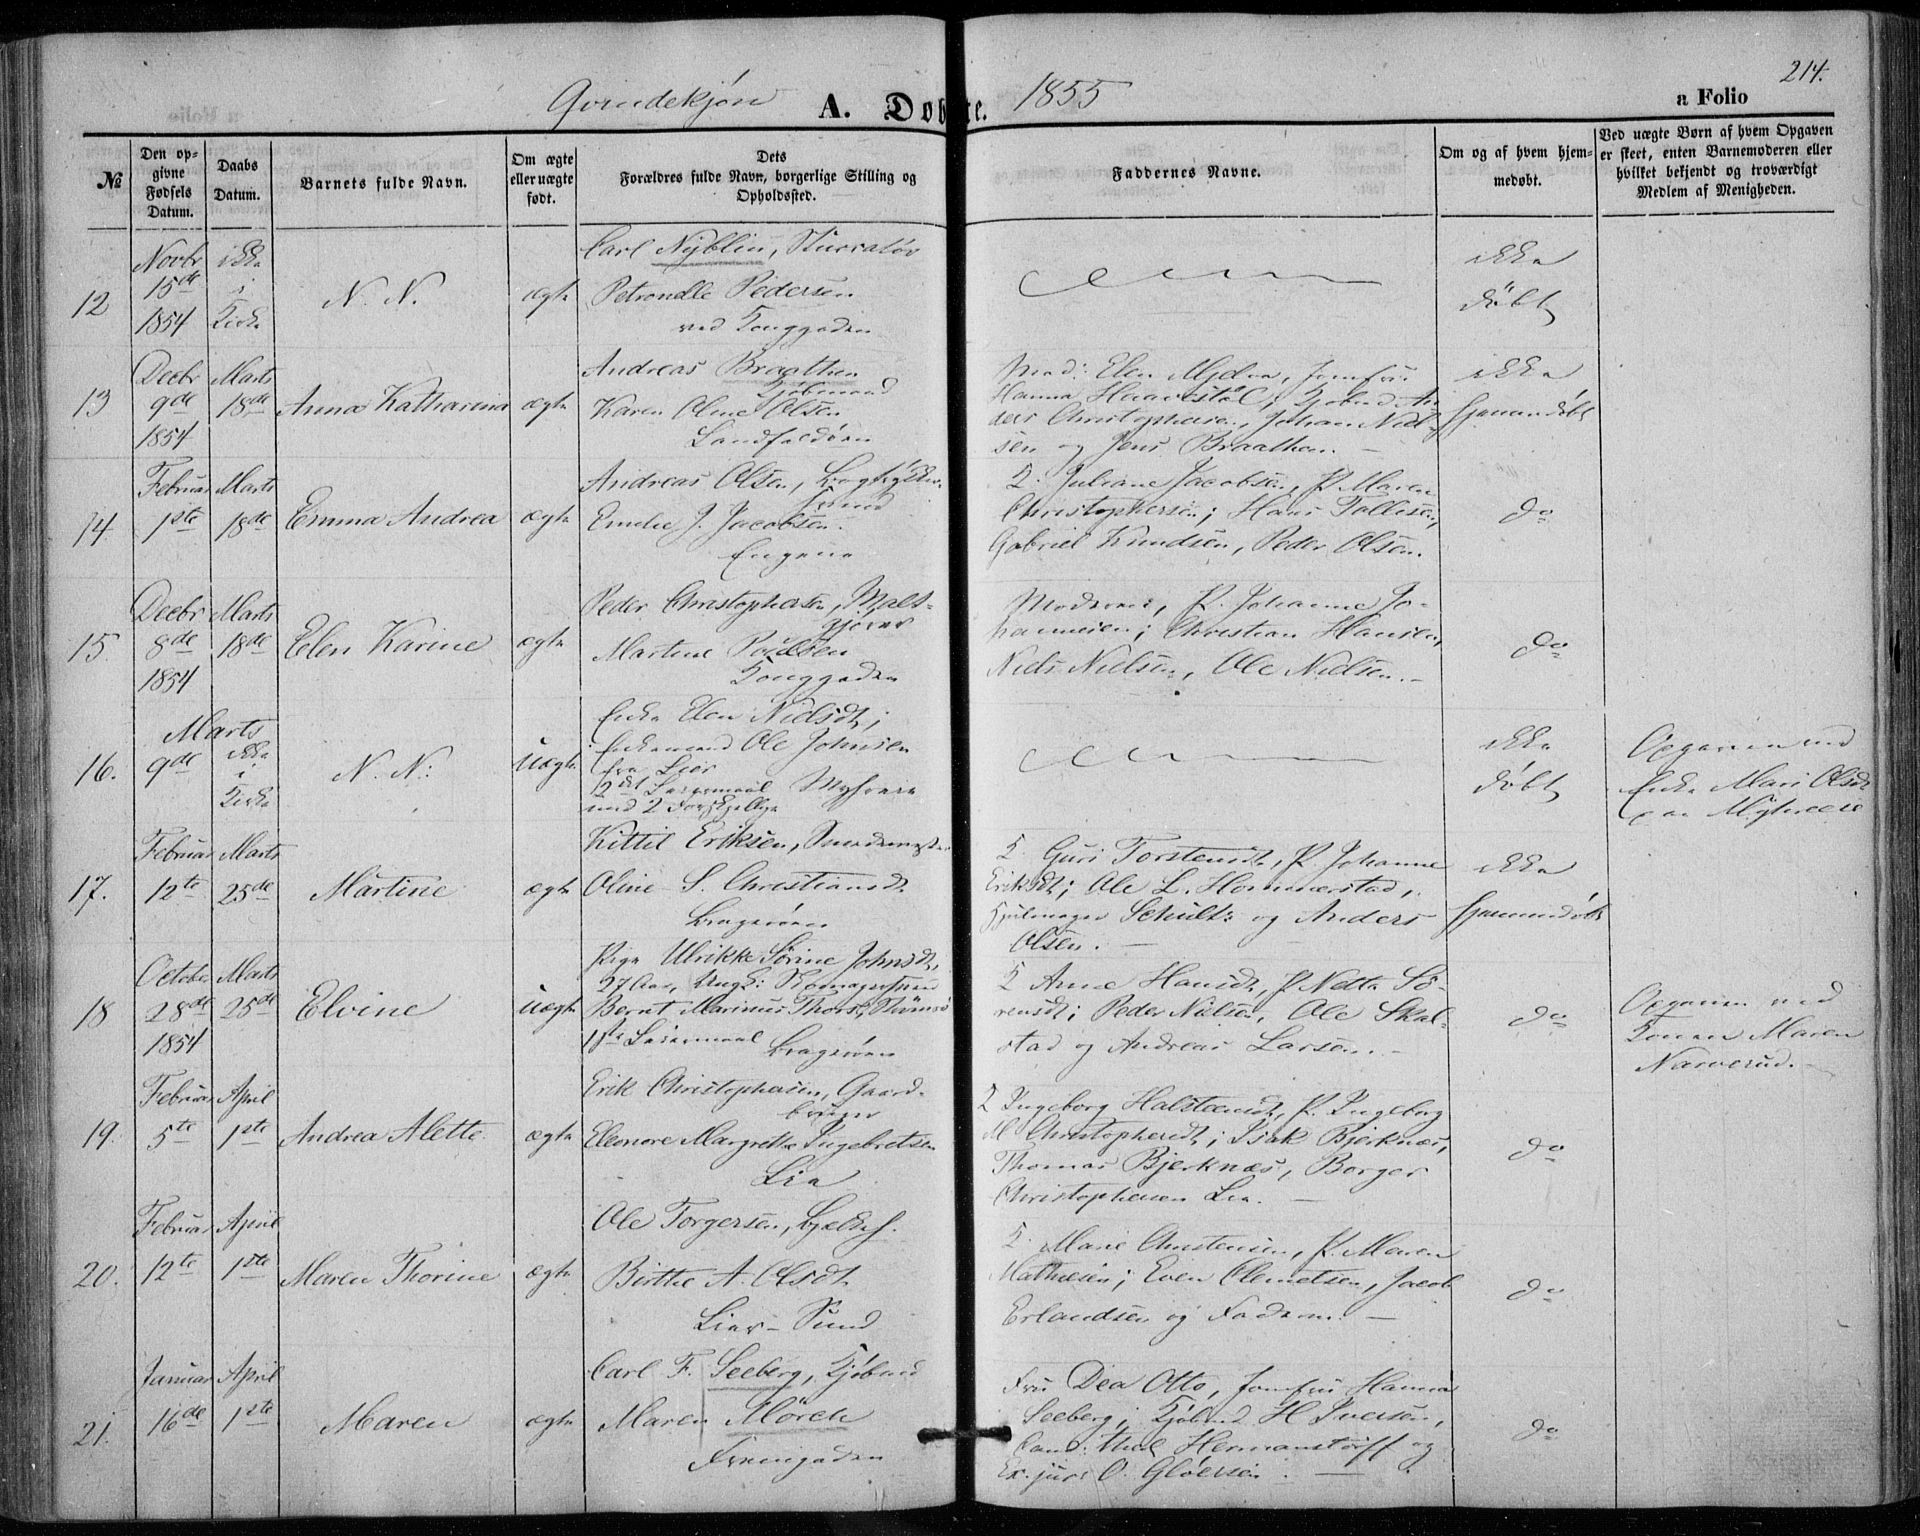 214.
Qvindekjøn A. Døbte. 1855 a Folio
№
Den op-
givne
Fødsels
Datum.
Daabs
Datum.
Barnets fulde Navn.
Om ægte
eller uægte
født.
Dets
Forældres fulde Navn, borgerlige Stilling og
Opholdssted.
Faddernes Navne.
Om og af hvem hjem-
medøbt.
Ved uægte Børn af hvem Opgaven
er skeet, enten Barnemoderen eller
hvilket bekjendt og troværdigt
Medlem af Menigheden.
12
Novbr
15de
1854
ikke
i
Kirke
N. N.
ægte
Carl Nyblin,
Petronelle Pedersen
ved Konggaden
ikke
døbt
13
Decbr
9de
1854
Marts
18de
Anna Katharina
ægte
Andreas Braathen
Kjøbmand
Karen Oline Olsen
Landfaldøen
Mad: Elen Jomfru
Hanna Kjøbmd An-
ders Christophersen, Johan Niel-
sen og Jens Braathen.
ikke
hjemmedøbt
14
Februar
1ste
Marts
18de
Emma Andrea
ægte
Andreas Olsen,
Emelie J. Jacobsen.
Engene
K. Juliane Jacobsen, P. Maren
Christophersen; Hans Tollesen,
Gabriel Knudsen, Peder Olsen.
do
15.
Decbr
8de
1854
Marts
18de
Elen Karine
ægte
Peder Christophersen, Mals-
gjører
Martine Povelsen
Konggaden
Moderen, P. Johanne Jo-
hannesen; Christian Hansen,
Niels Nielsen, Ole Nielsen.
do
16.
Marts
9de
ikke
i
Kirke
N. N.
uægte
Enke Elen Nielsdt;
Enkemand Ole Johnsen
fra Lier
2det Leiermaal
med 2 Forskjellige
ikke
døbt
Opgaven ved
Enke Mari Olsdt
17.
Februar
12te
Marts
25de
Martine
ægte
Kittil Eriksen,
Oline S. Christiansdt
Bragerøen
K. Guri Torstensdt, P. Johanne
Eriksdt; Ole L. Hommerstad,
Hjulmager Schultz og Anders
Olsen.
ikke
hjemmedøbt
18
October
28de
1854
Marts
25de
Elvine
uægte
Pige Ulrikke Sørine Johnsdt,
27 Aar, Ungk: Skomagersvend
Bernt Marinus Thors, Strømsø
1ste Leiermaal Bragerøen
K Anne Hansdt, P. Netta Sø-
rensdt; Peder Nielsen, Ole Skal-
stad og Andreas Larsen.
do
Opgaven ved
Konen Maren
Narverud.
19.
Februar
5te
April
1ste
Andrea Alette
ægte
Erik Christophersen, Gaard-
bruger
Eleonore Margrethe Ingebretsen
Lie
K Ingeborg Halstensdt, P. Ingeborg
M Christophersdt; Isak Bjerknæs,
Thomas Bjerknæs, Borger
Christophersen Lie.
do
20.
Februar
12te
April
1ste
Maren Thorine
ægte
Ole Torgersen,
Birthe A. Olsdt
Lier-Sund
K. Marie Christensen, P. Maren
Mathisen; Even Clemetsen, Jacob
Erlandsen og Faderen.
do
21.
Januar
16de
April
1ste
Maren
ægte
Carl F. Seeberg, Kjøbmd
Maren Mørch
Fru Dea Otto, Jomfru Hanna
Seeberg; Kjøbmd H Iversen,
Cand: theol Hermanstorff og
Ex. juris O. Gløersen.
do